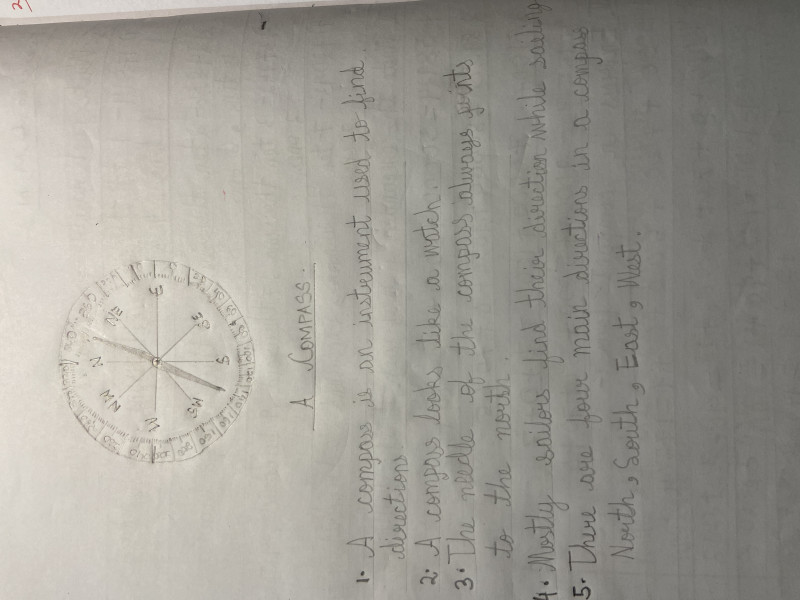 A COMPASS.
1. A compass is an instrument used to find
directions.
2. A compass looks like a watch.
3. The needle of the compass always points
to the north.
4. Mostly sailors find their direction while sailing
5. There are four main directions in a compass
North, South, East, West.
N
NE
E
SE
S
WS
W
NW